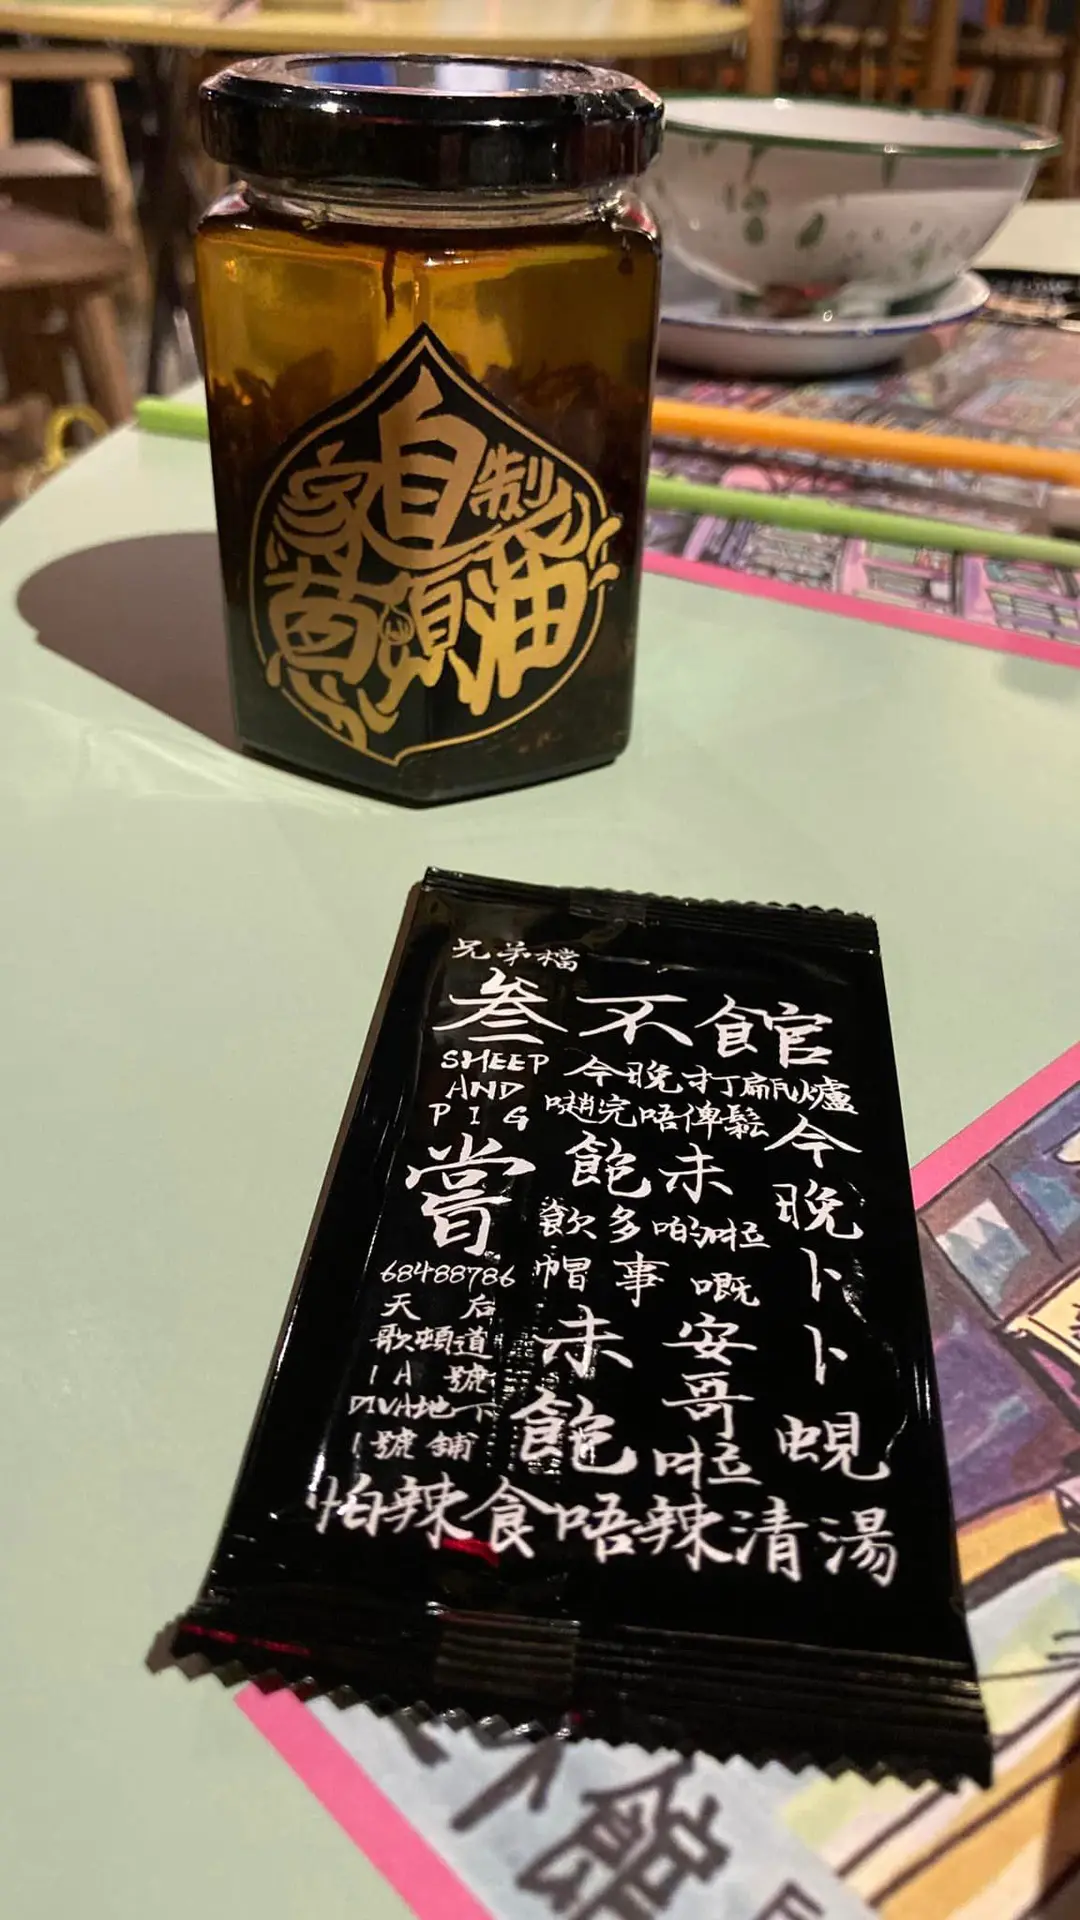 自家製
葱頭油
兄弟檔
叁不館
SHEEP
AND
PIG
今晚打甂爐
嘥完唔俾鬆
今晚卜卜蜆
飽未
嘗
飲多啲啦
帽事
嘅
68488786
天后
歌頓道
1A號
DIVA地下
1號舖
未飽
安哥啦
怕辣食唔辣清湯
不館